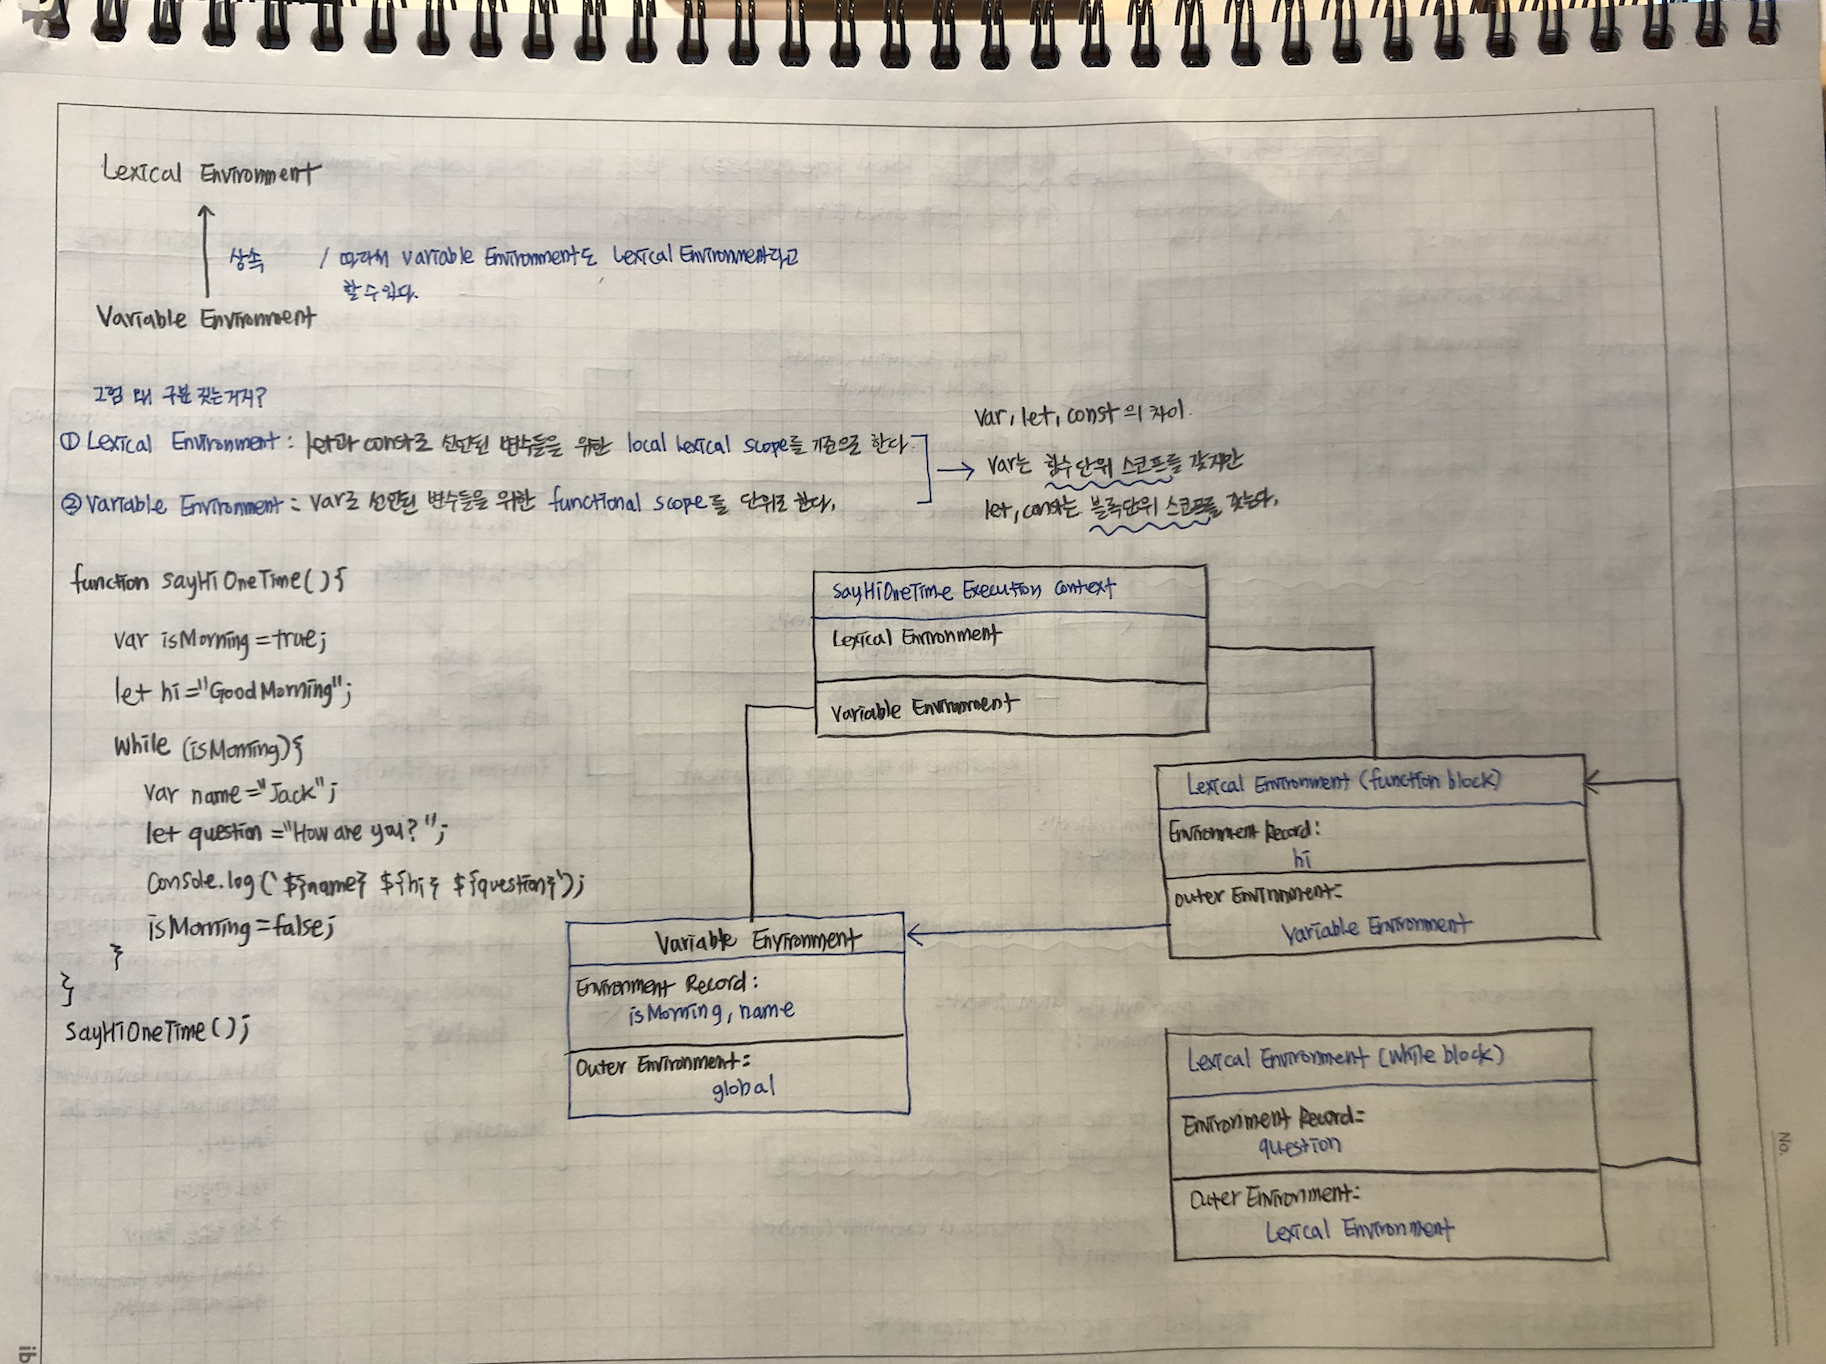 Lexical Environment
상속 / 따라서 Variable Environment도 Lexical Environment라고
할 수 있다.
Variable Environment
그럼 왜 구분 짓는거지?
① Lexical Environment : let과 const로 선언된 변수들을 위한 local Lexical scope를 기준으로 한다.
② Variable Environment : var로 선언된 변수들을 위한 functional scope를 단위로 한다.
var, let, const 의 차이.
var는 함수단위 스코프를 갖지만
let, const는 블록단위 스코프를 갖는다.
function sayHiOneTime(){
var isMorning = true;
let hi = "Good Morning";
while (isMorning){
var name = "Jack";
let question = "How are you?";
console.log(`${name} ${hi} ${question}`);
isMorning = false;
}
}
sayHiOneTime();
sayHiOneTime Execution Context
Lexical Environment
Variable Environment
Lexical Environment (function block)
Environment Record:
hi
outer Environment:
Variable Environment
Variable Environment
Environment Record:
isMorning, name
Outer Environment:
global
Lexical Environment (while block)
Environment Record:
question
Outer Environment:
Lexical Environment
No.